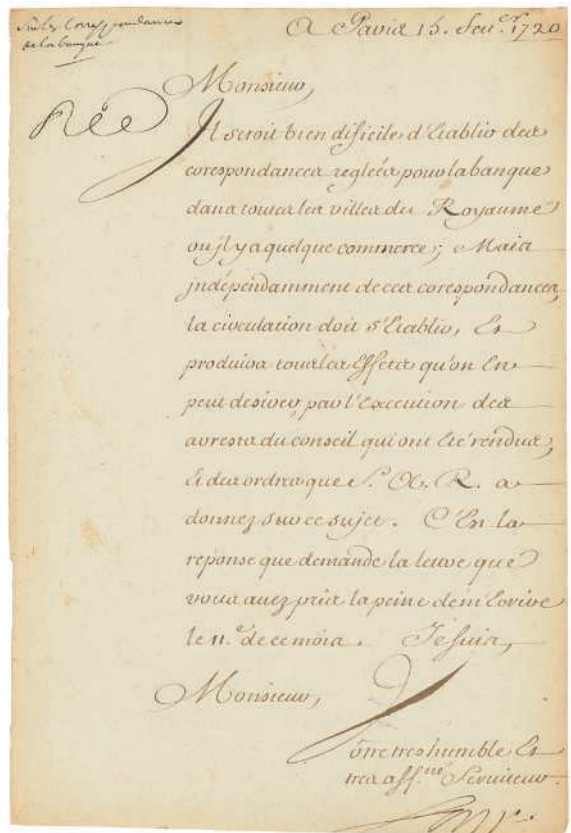 Sur les Correspondances
de la banque
A Paris 15. Feu.er 1720
Monsieur,
Rée
Il seroit bien dificile d'Etablir des
corespondances regleés pour la banque
dans toutes les villes du Royaume
ou jl y a quelque commerce; Mais
jndépendamment de ces corespondances,
la circulation doit s'Etablir, Et
produira tous les Effets qu'on En
peut desirer, par l'Execution des
arrests du conseil qui ont été rendus,
Et des ordres que S. A. R. a
donnez sur ce sujet. C'Est la
reponse que demande la lettre que
vous avez pris la peine de m'Ecrire
le 11.e de ce mois. Je suis,
Monsieur,
Vôtre tres humble Et
tres aff.né Serviteur